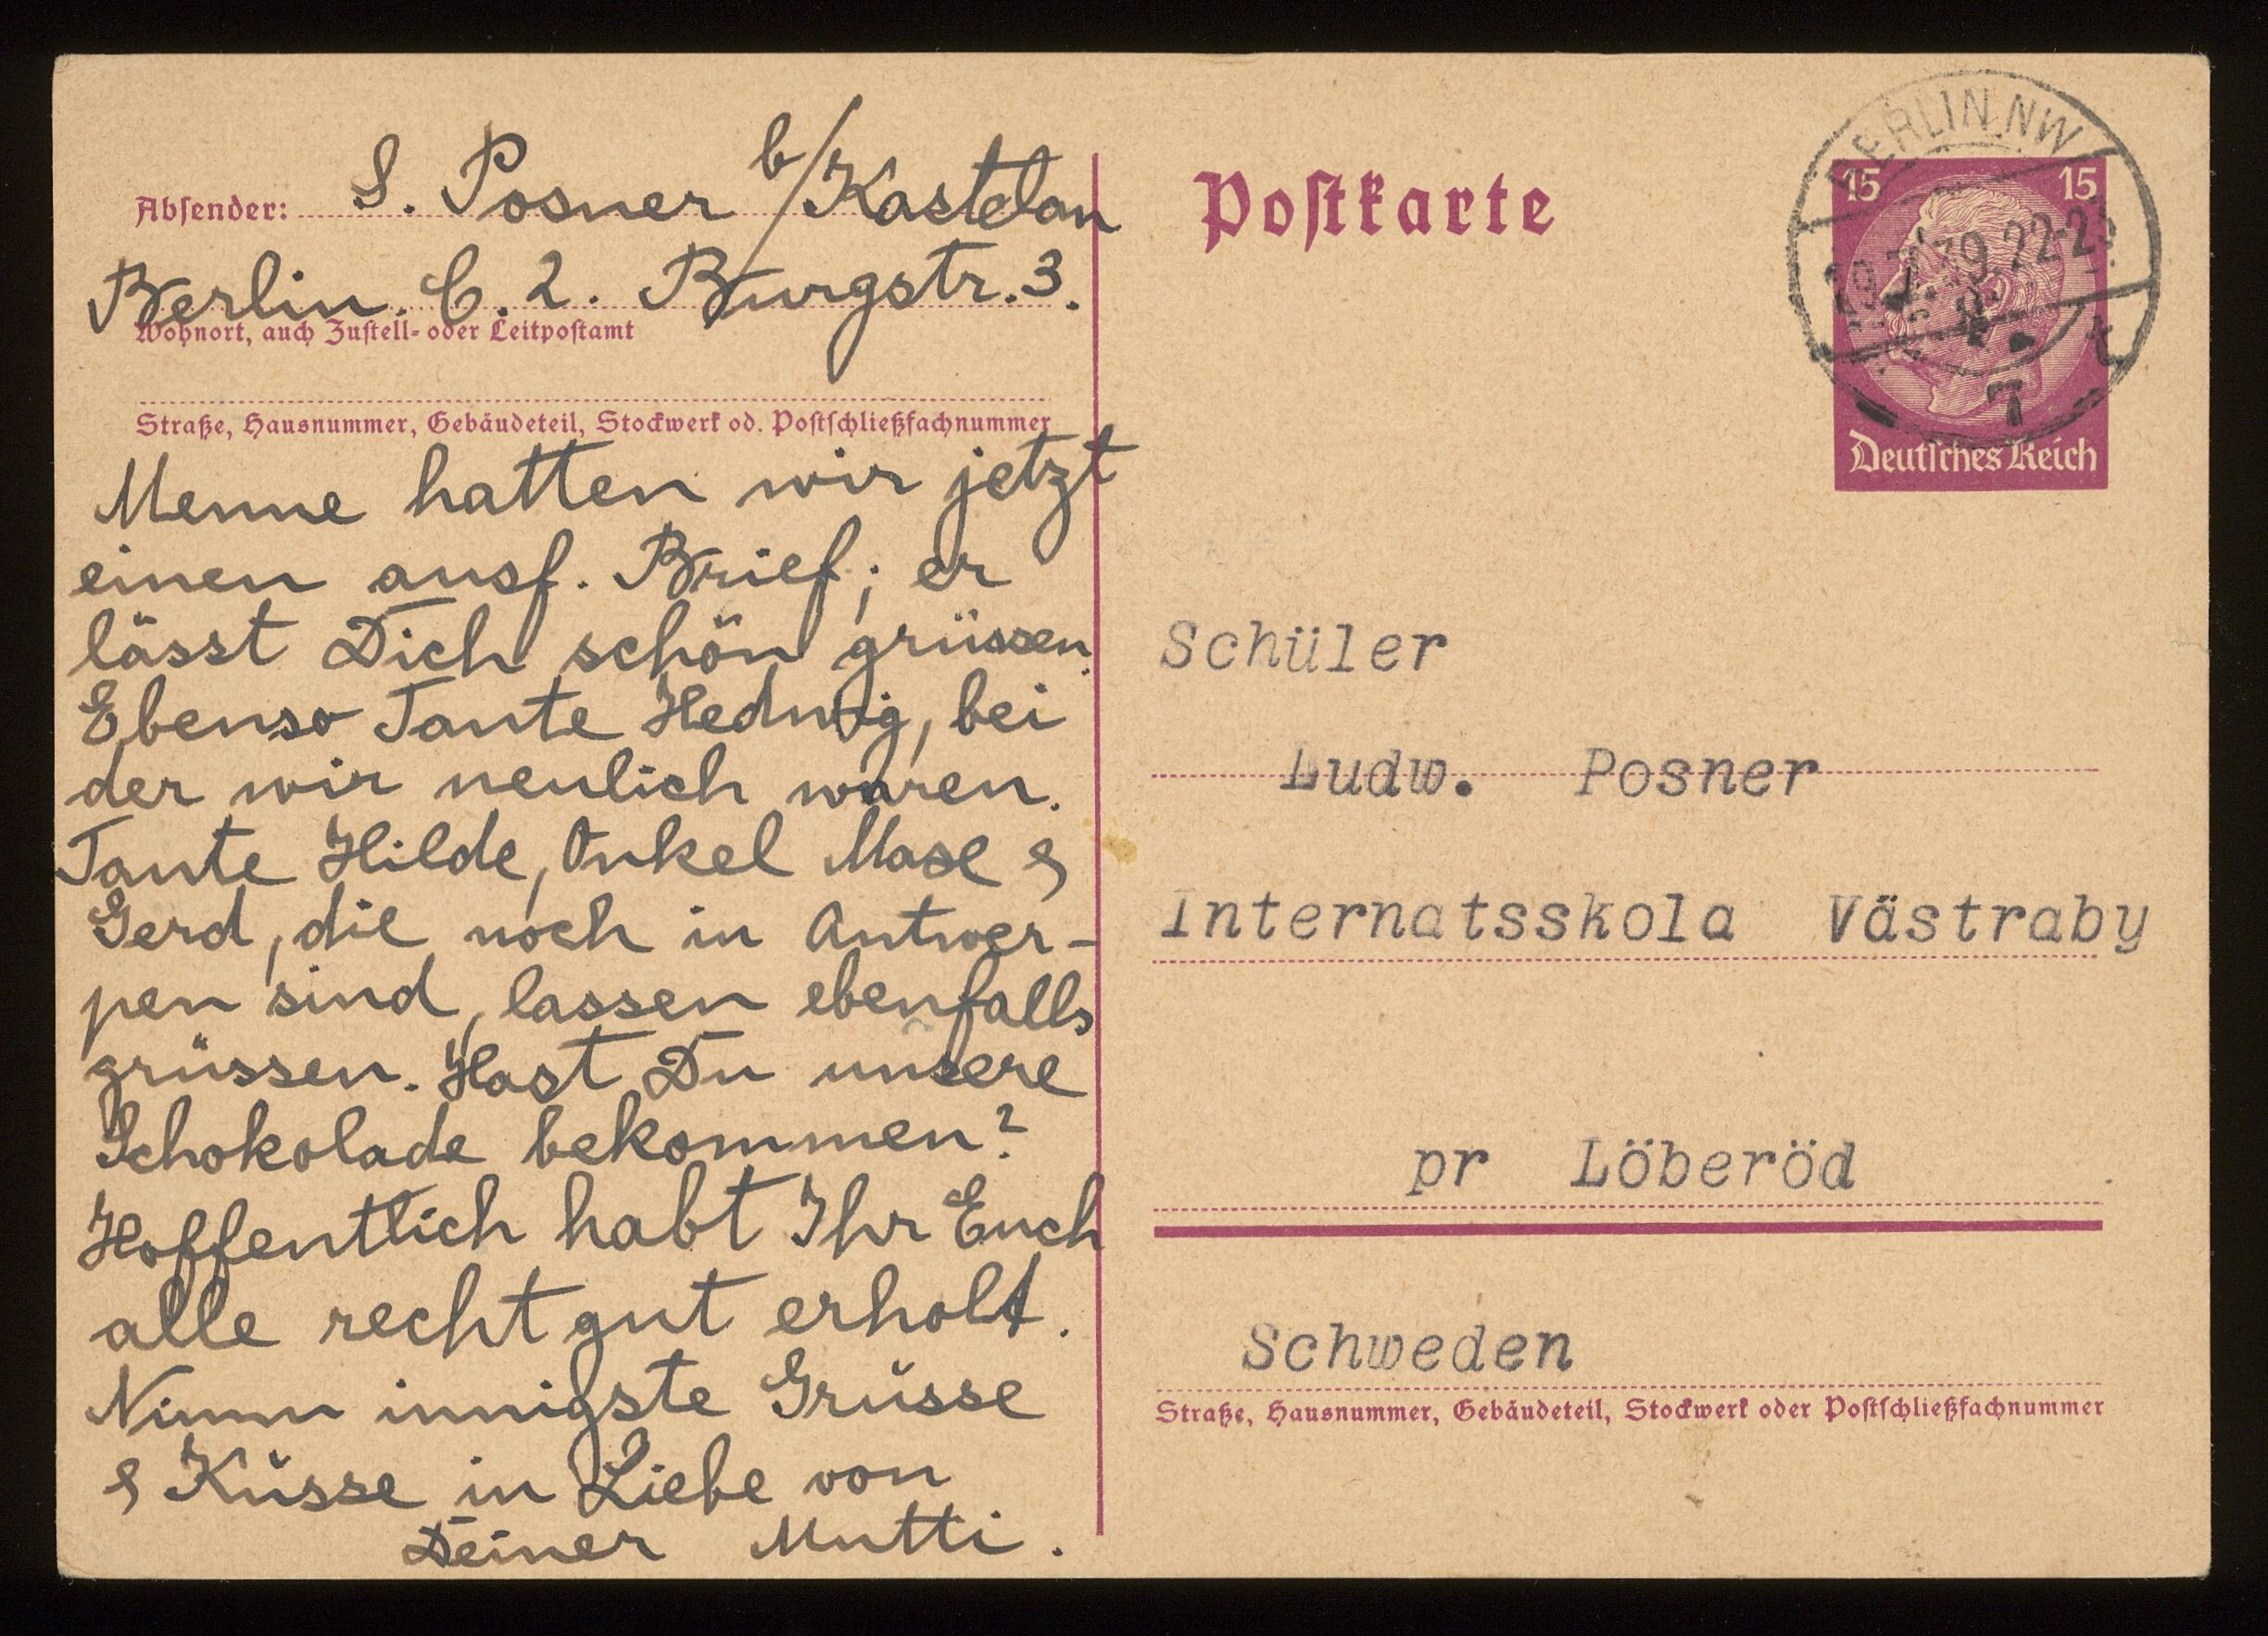 Absender: S. Posner b/Kastelan
Berlin. C. 2. Burgstr. 3.
Wohnort, auch Zustell- oder Leitpostamt
Straße, Hausnummer, Gebäudeteil, Stockwerk od. Postschließfachnummer
Menne hatten wir jetzt
einen ausf. Brief; er
lässt Dich schön grüssen.
Ebenso Tante Hedwig, bei
der wir neulich waren.
Tante Hilde, Onkel Maxe &
Gerd, die noch in Antwer-
pen sind, lassen ebenfalls
grüssen. Hast Du unsere
Schokolade bekommen?
Hoffentlich habt Ihr Euch
alle recht gut erholt.
Nimm innigste Grüsse
& Küsse in Liebe von
Deiner Mutti.
Postkarte
BERLIN NW 7
39 22-2
t
15 15
Deutsches Reich
Schüler
Ludw. Posner
Internatsskola Västraby
pr Löberöd
Schweden
Straße, Hausnummer, Gebäudeteil, Stockwerk oder Postschließfachnummer